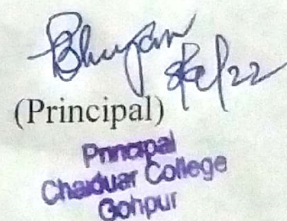 Bhuyan
(Principal)
Principal
Chaiduar College
Gohpur